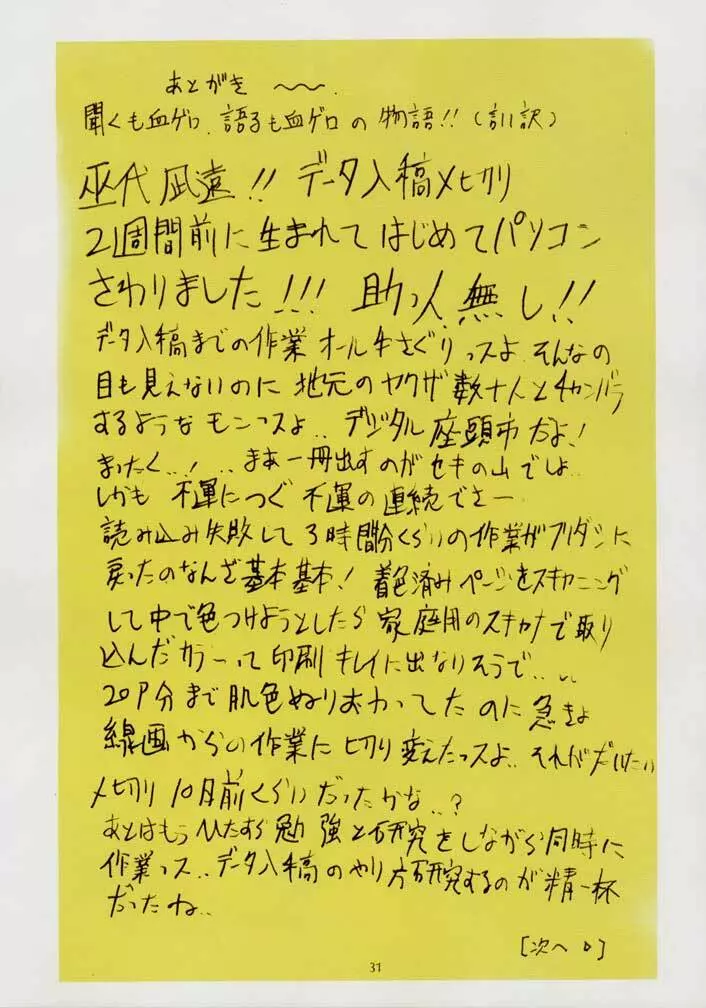 あとがき 〜〜.
聞くも血ゲロ、語るも血ゲロの物語!!(言い訳)
巫代凪遠!! データ入稿〆切り
2週間前に生まれてはじめてパソコン
さわりました!!! 助っ人無し!!
データ入稿までの作業オール手さぐりっスよ そんなの
目も見えないのに地元のヤクザ数十人とチャンバラ
するようなモンっスよ.. デジタル座頭市だよ!
まったく..! ..まあ一冊出すのがセキの山でしょ..
しかも不運につぐ不運の連続でさー
読み込み失敗して3時間分くらいの作業がフリダシに
戻ったのなんざ基本基本! 着色済みページをスキャニング
して中で色つけようとしたら家庭用のスキャナで取り
込んだカラーって印刷キレイに出なりそうで.. ..
20P分まで肌色ぬりおわってたのに急きょ
線画からの作業に切り変えたっスよ.. それがだいたい
〆切り10日前くらいだったかな..?
あとはもうひたすら勉強と研究をしながら同時に
作業っス.. データ入稿のやり方研究するのが精一杯
だったね..
[次へ▷]
31